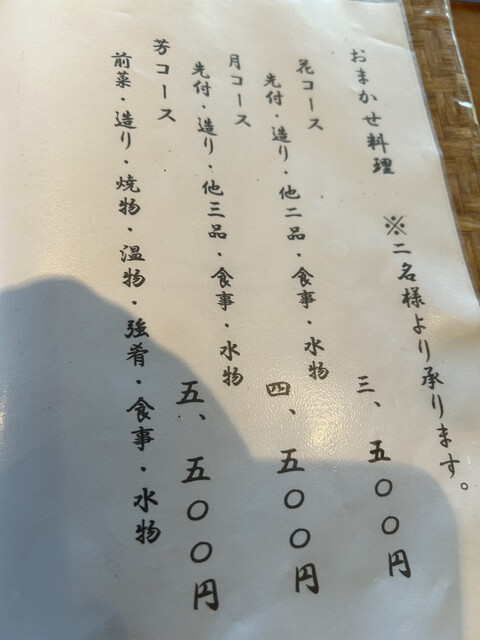 おまかせ料理 ※二名様より承ります。
花コース 三、五〇〇円
先付・造り・他二品・食事・水物
月コース 四、五〇〇円
先付・造り・他三品・食事・水物
芳コース 五、五〇〇円
前菜・造り・焼物・温物・強肴・食事・水物